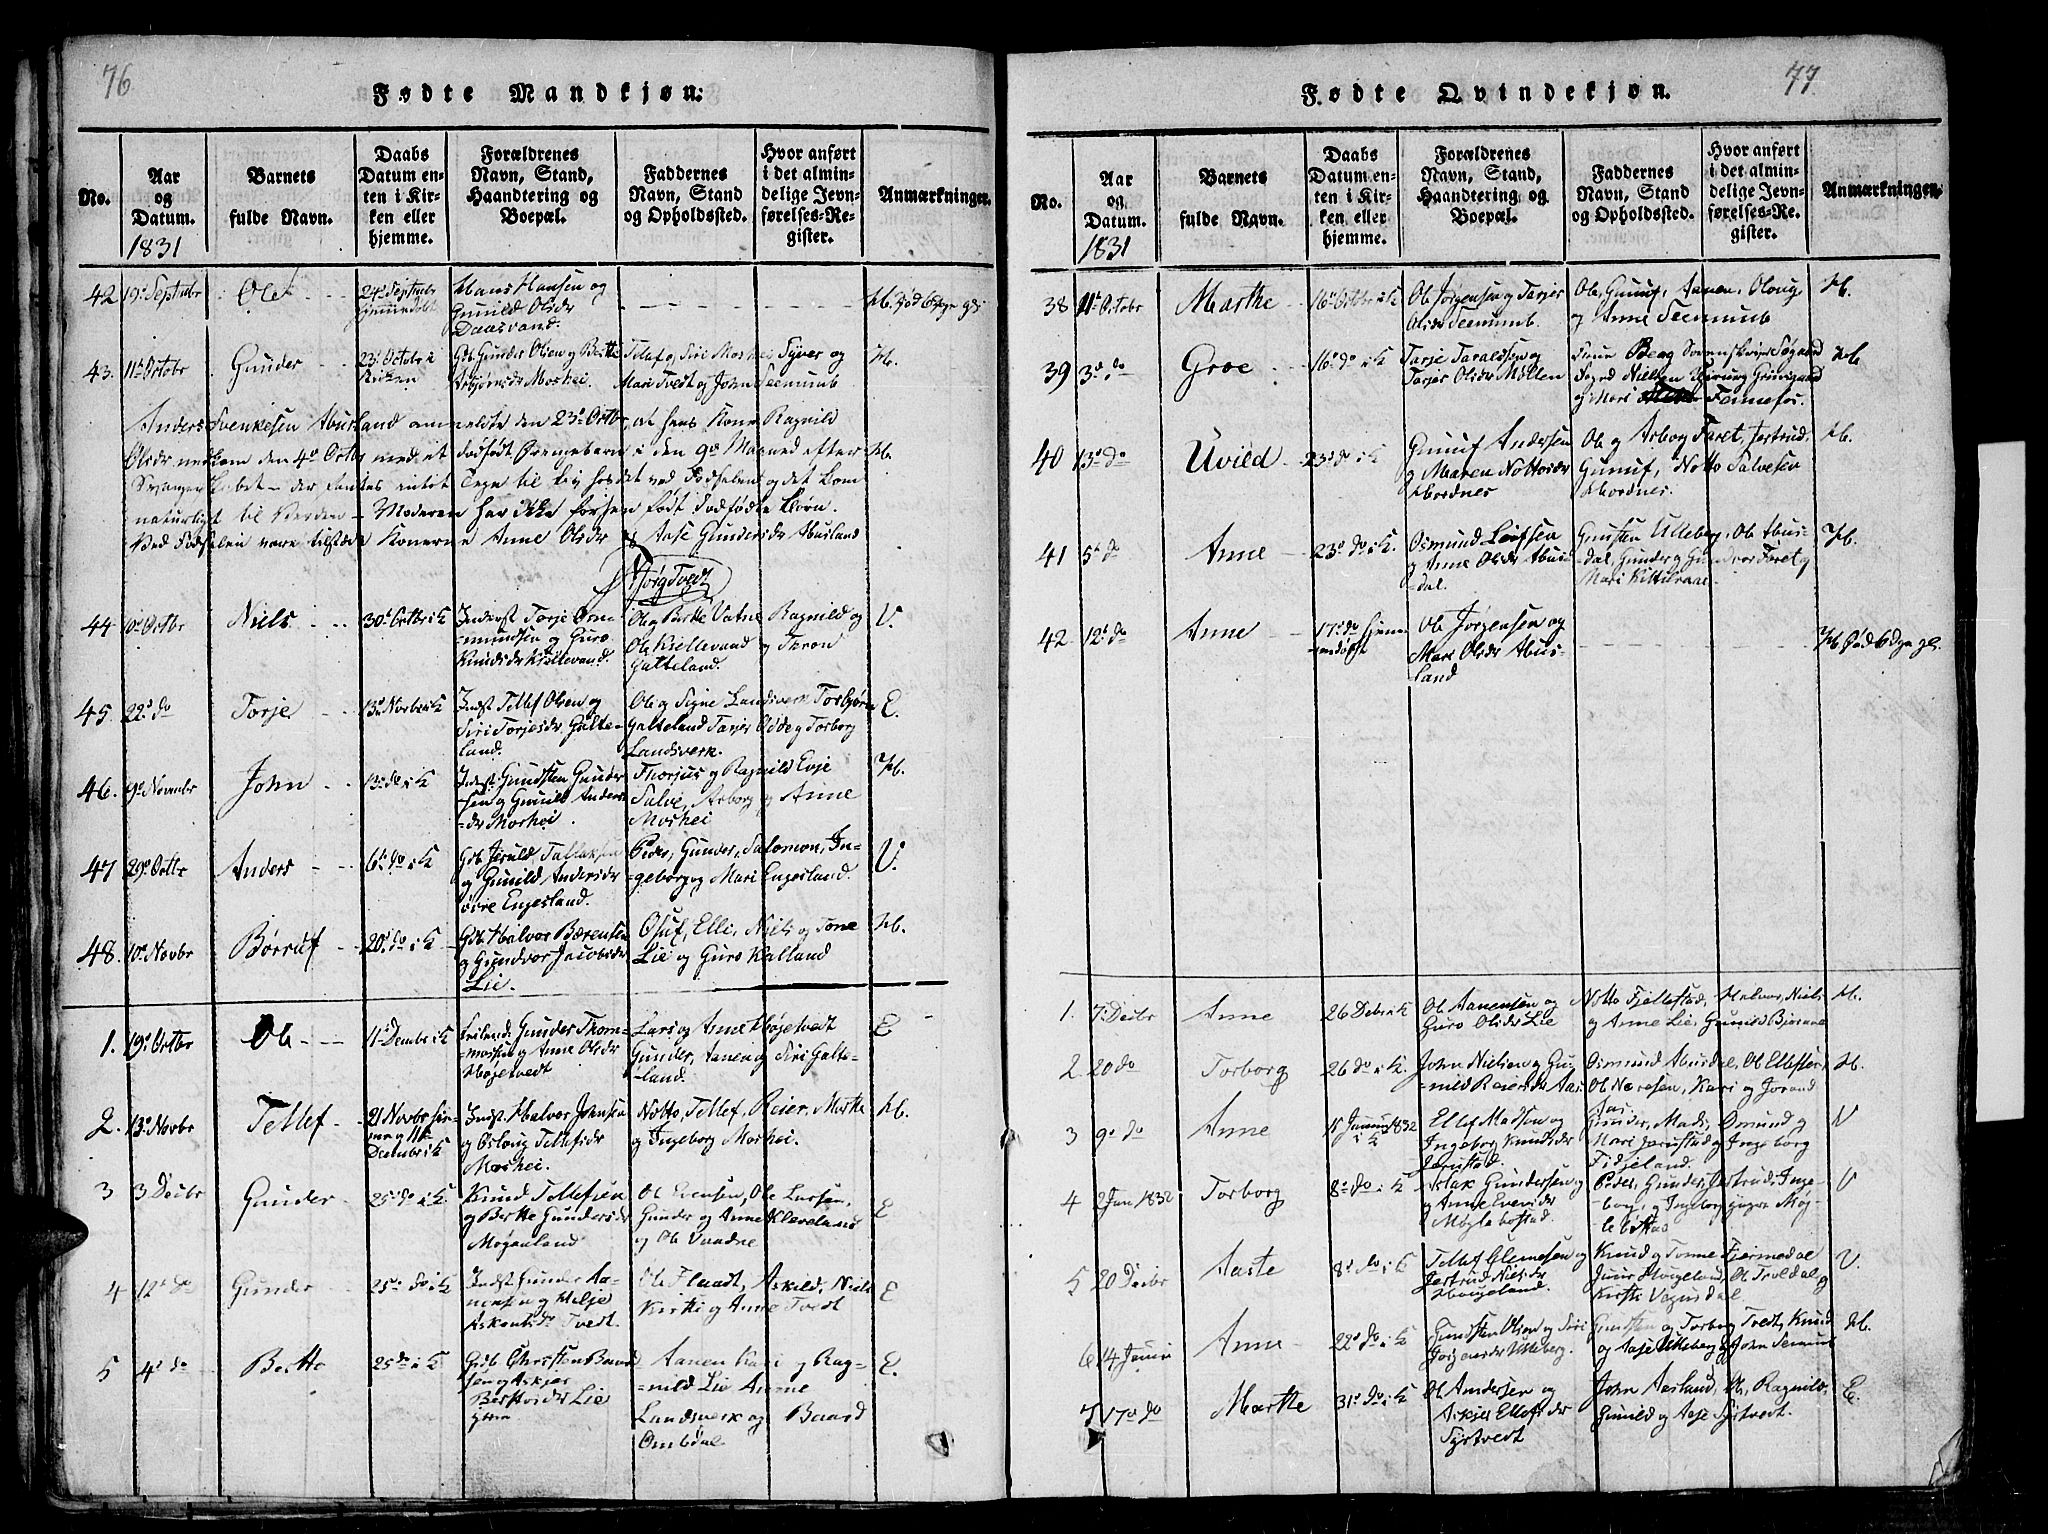 76
Fødte Mandkjøn.
No.
Aar
og
Datum.
1831
Barnets
fulde Navn.
Daabs
Datum en-
ten i Kir-
ken eller
hjemme.
Forældrenes
Navn, Stand,
Haandtering og
Boepæl.
Faddernes
Navn, Stand
og Opholdssted.
Hvor anført
i det almin-
delige Jevn-
førelses-Re-
gister.
Anmærkninger.
42 19de Septmbr Ole
24de Septmbr
Hans Hansen og
Gunild Olsdr
Daasvand.
H.
43. 11te Octobr Gunder
23de Octobr i
Kirken
Gdb. Gunder Olsen og Berthe
Asbjørnsdr Moshei.
Tellef og Siri Moshei Syver og
Mari Tvedt og John Seemund
H.
Anders Svenkesen Abusland anmeldte den 23de Octbr, at hans Kone Ragnild
Olsdr nedkom den 4de Octbr med et dødfødt Drengebarn i den 9de Maaned efter
Svangerskabet - der fantes intet Tegn til Liv hos det ved Fødselen og det kom
naturligst til Verden - Moderen har ikke forhen født dødfødte Børn.
Ved Fødselen vare tilstæde Konerne Anne Olsdr og Aase Gundersdr Abusland
H.
Tvedt
44 10de Octbr Niels
30de Octbr i K
Inderst Torje Os-
mundsen og Guro
Knudsdr Kjellevand.
Ole og Berte Vatne Ragnild og
Ole Kjellevand og Tron
Galteland.
V.
45. 22de do Torje
13de Novbr i K
Indst Tellef Olsen og
Siri Torjesdr Galte-
land.
Ole og Signe Landsverk Torbjørn
Galteland Tarjer Odde og Torborg
Landsverk.
E.
46. 9de Novembr John
13de do i K
Indst. Gundsten Gunder-
sen og Gunild Anders-
dr Moshei.
Thorjus og Ragnild Evje
Salve, Asborg og Anne
Moshei
H.
47 29de Octbr Anders
6te do i K
Gdb. Jeruld Tallaksen
og Gunild Andersdr
øvre Engesland.
Peder, Gunder, Salomon, In-
geborg og Mari Engesland.
V.
48. 10de Novbr Børruf
20de do i K
Gdb. Halvor Børensen
og Gundvor Jacobsdr
Lie.
Osuf, Elli, Niels og Tone
Lie og Guro Kalland
H.
1. 19de Octbr Ole
11te Decmbr i K
Gunder Thom-
massen og Anne Olsdr
Høgetvedt
Lars og Anne Høgetvedt
Gunder, Aanen og Siri Galte-
land.
E
2. 13de Novbr Tellef
21 Novbr hjem-
me og 11te
Decembr i K
Indst. Halvor Johnsen
og Oslaug Tellefsdr
Moshei.
Notto, Tellef, Reier, Marthe
og Ingeborg Moshei.
H.
3 3 Decbr Gunder
25de do i K
Knud Tellefsen
og Berthe Gundersdr
Ole Evensen, Ole Larsen,
Gunder og Anne Kleveland
og Ole
E
4 12te do Gunder
25de do i K
Indst. Gunder Aa-
nensen og Helje
Tvedt.
Ole Flaadt, Askild, Niels
Kirsti og Anne Tvedt
E
5 4de do Bertho
25 do i K
Gdb Christen Baard-
sen og Askjær
Berthosdr Lie
Aanen Kari og Rag-
nild Lie Anne
Landsverk og Baard
Omdal
E.
77
Fødte Qvindekjøn.
No.
Aar
og
Datum.
1831
Barnets
fulde Navn.
Daabs
Datum en-
ten i Kir-
ken eller
hjemme.
Forældrenes
Navn, Stand,
Haandtering og
Boepæl.
Faddernes
Navn, Stand
og Opholdssted.
Hvor anført
i det almin-
delige Jevn-
førelses-Re-
gister.
Anmærkninger.
38 11te Octobr Marthe
16de Octbr i K
Ole Jørgensen og Tarjer
Olsdr Seemund.
Ole, Gunuf, Aanen, Oloug
og Anne Seemund
H.
39 3de do Groe
16de do i K
Tarje Taraldsen og
Tarjer Olsdr Møllen
Berg
Niels
og Mari Fennefos.
H
40 13de do Uvild
23de do i K
Gunuf Andersen
og Maren Nottosdr
Hordnes
Ole og Asborg Faret, Jertrud,
Gunuf, Notto Salvesen
Hordnes.
H.
41 5te do Anne
23de do i K.
Osmund Leifsen
og Anne Olsdr Abus-
dal.
Gunsten Uleberg, Ole Abus-
dal, Gunder og Gundvor Faret og
Mari Kittilsaae.
H.
42 12te do Anne
17de do hjem-
medøbt
Ole Jørgensen og
Mari Olsdr Abus-
land
H.
1. 7de Decbr Anne
26 Decbr i K
Ole Aanensen og
Guro Olsdr Lie
Notto Fjellestad, Halvor, Niels
og Anne Lie, Gunild Bjoraae
H.
2. 20 do Torborg
26 do i K.
John Nielsen og Gu-
nild Reiersdr Aas
Osmund Abusdal, Ole
Ole Næresen, Kari og Jorand
Aas.
H.
3 9de do Anne
15 Januar 1832
i K
Ellef Madsen og
Ingeborg Knudsdr
Jerustad.
Gunder, Mads, Omund og
Mari Jerustad og Ingeborg
Fidjeland.
V
4 2 Jan 1832 Torborg
8de do i K
Aslak Gundersen og
Anne Eversdr
Møglebostad.
Peder, Gunder, Jertrud, Inge-
borg, og Ingeborg yngre Møg-
lebostad
V
5 20 Decbr Aaste
8de do i K
Tellef Glennesen og
Jertrud Nielsdr
Hougeland.
Knud og Tonne Fjermedal
Juur Hougeland, Ole Troldal og
Kirsti Vegusdal
V.
6 14 Januar Anne
22de do i K
Gundsten Olsen og Siri
Jørgensdr Uleberg.
Gundsten og Torborg Tvedt, Knud
og Aase Uleberg og John Semund
H.
7 17de do Marthe
31te do i K
Ole Andersen og
Askjer Ellefsdr
Systvedt
John Aasland, Ole, Ragnild,
Gunild og Aase Systvedt.
E.